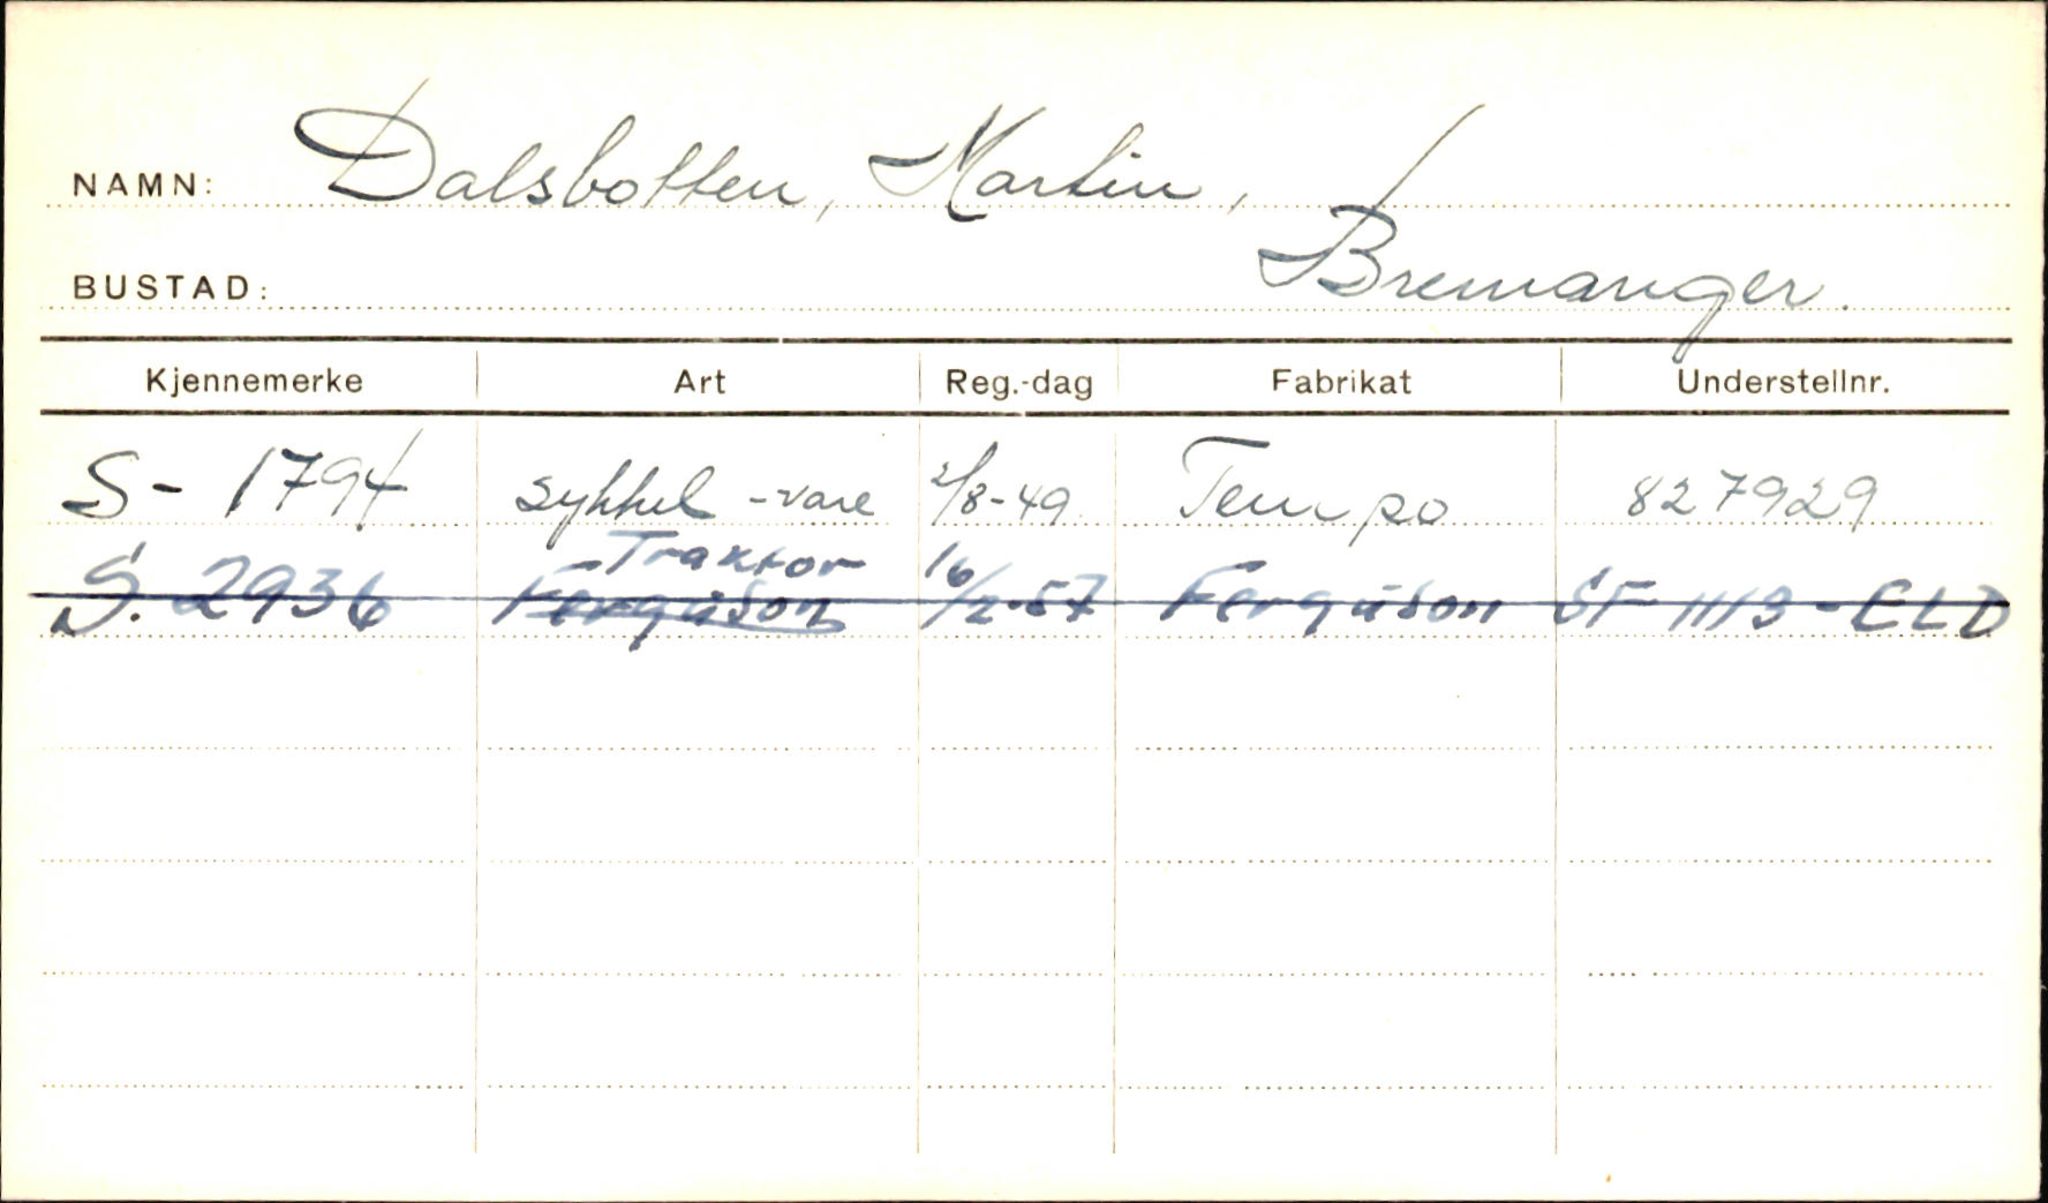 NAMN: Dalsbotten, Martin,
BUSTAD: Bremanger.
Kjennemerke Art Reg.-dag Fabrikat Understellnr.
S- 1794 sykkel -vare 2/8-49 Tempo 827929
-Traktor
S. 2936 Ferguson 16/2-57 Ferguson SF 1113-ELD